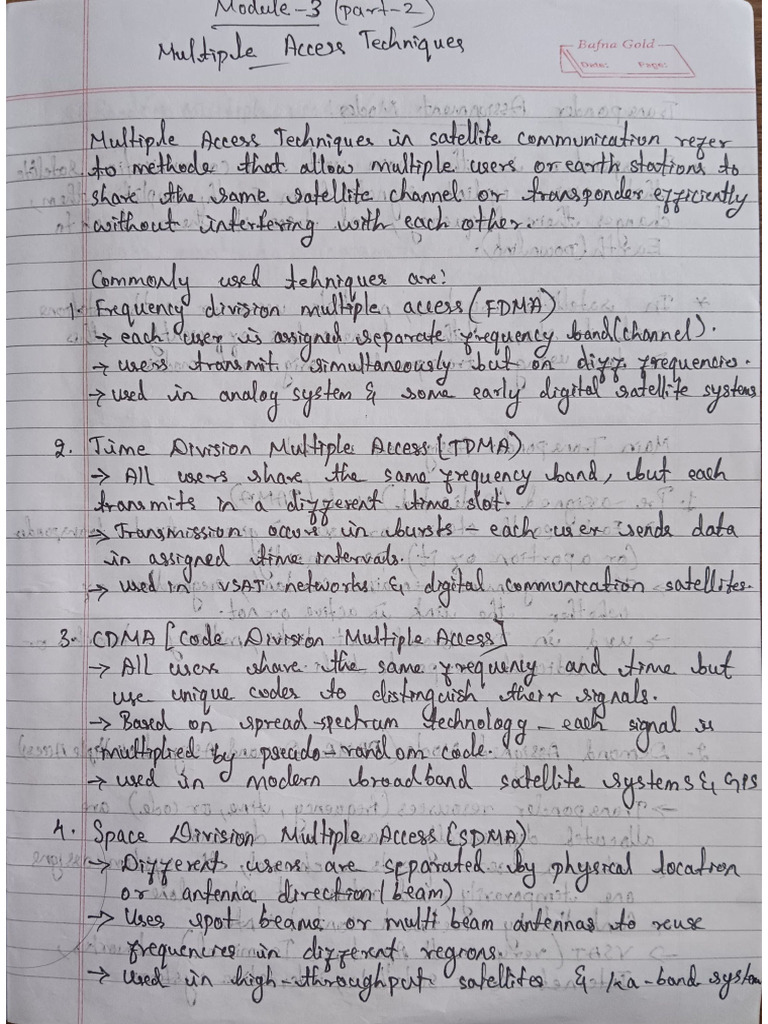 Module-3 (part-2)
Multiple Access Techniques
Bafna Gold
Date: Page:
Multiple Access Techniques in satellite communication refer
to methods that allow multiple users or earth stations to
share the same satellite channel or transponder efficiently
without interfering with each other.
Commonly used tehniques are:
1. Frequency division multiple access (FDMA)
→ each user is assigned separate frequency band (channel).
→ users transmit simultaneously but on diff frequencies.
→ used in analog system & some early digital satellite systems
2. Time Division Multiple Access (TDMA)
→ All users share the same frequency band, but each
transmits in a different time slot.
→ Transmission occurs in bursts - each user sends data
in assigned time intervals.
→ used in VSAT networks & digital communication satellites.
3. CDMA [Code Division Multiple Access]
→ All users share the same frequency and time but
use unique codes to distinguish their signals.
→ Based on spread-spectrum technology - each signal is
multiplied by pseudo-random code.
→ used in modern broadband satellite systems & GPS
4. Space Division Multiple Access (SDMA)
→ Different users are separated by physical location
or antenna direction (beam)
→ Uses spot beams or multi beam antennas to reuse
frequencies in different regions.
→ used in high-throughput satellites & ka-band system